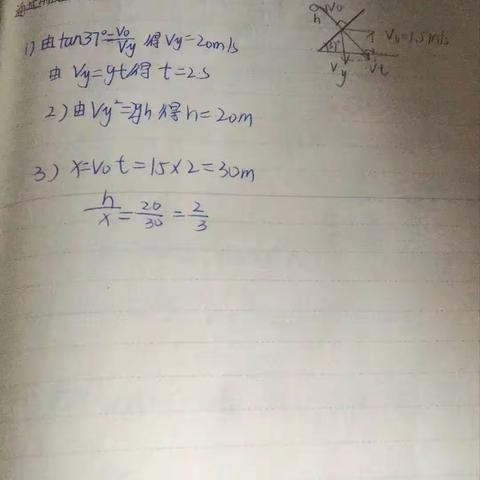 1) 由tan37°=V0/Vy 得Vy=20m/s
由 Vy=gt得 t=2s
2) 由Vy²=2gh 得h=20m
3) X=V0t=15×2=30m
h/X=20/30=2/3
V0
h
V0=15m/s
37°
Vy
Vt